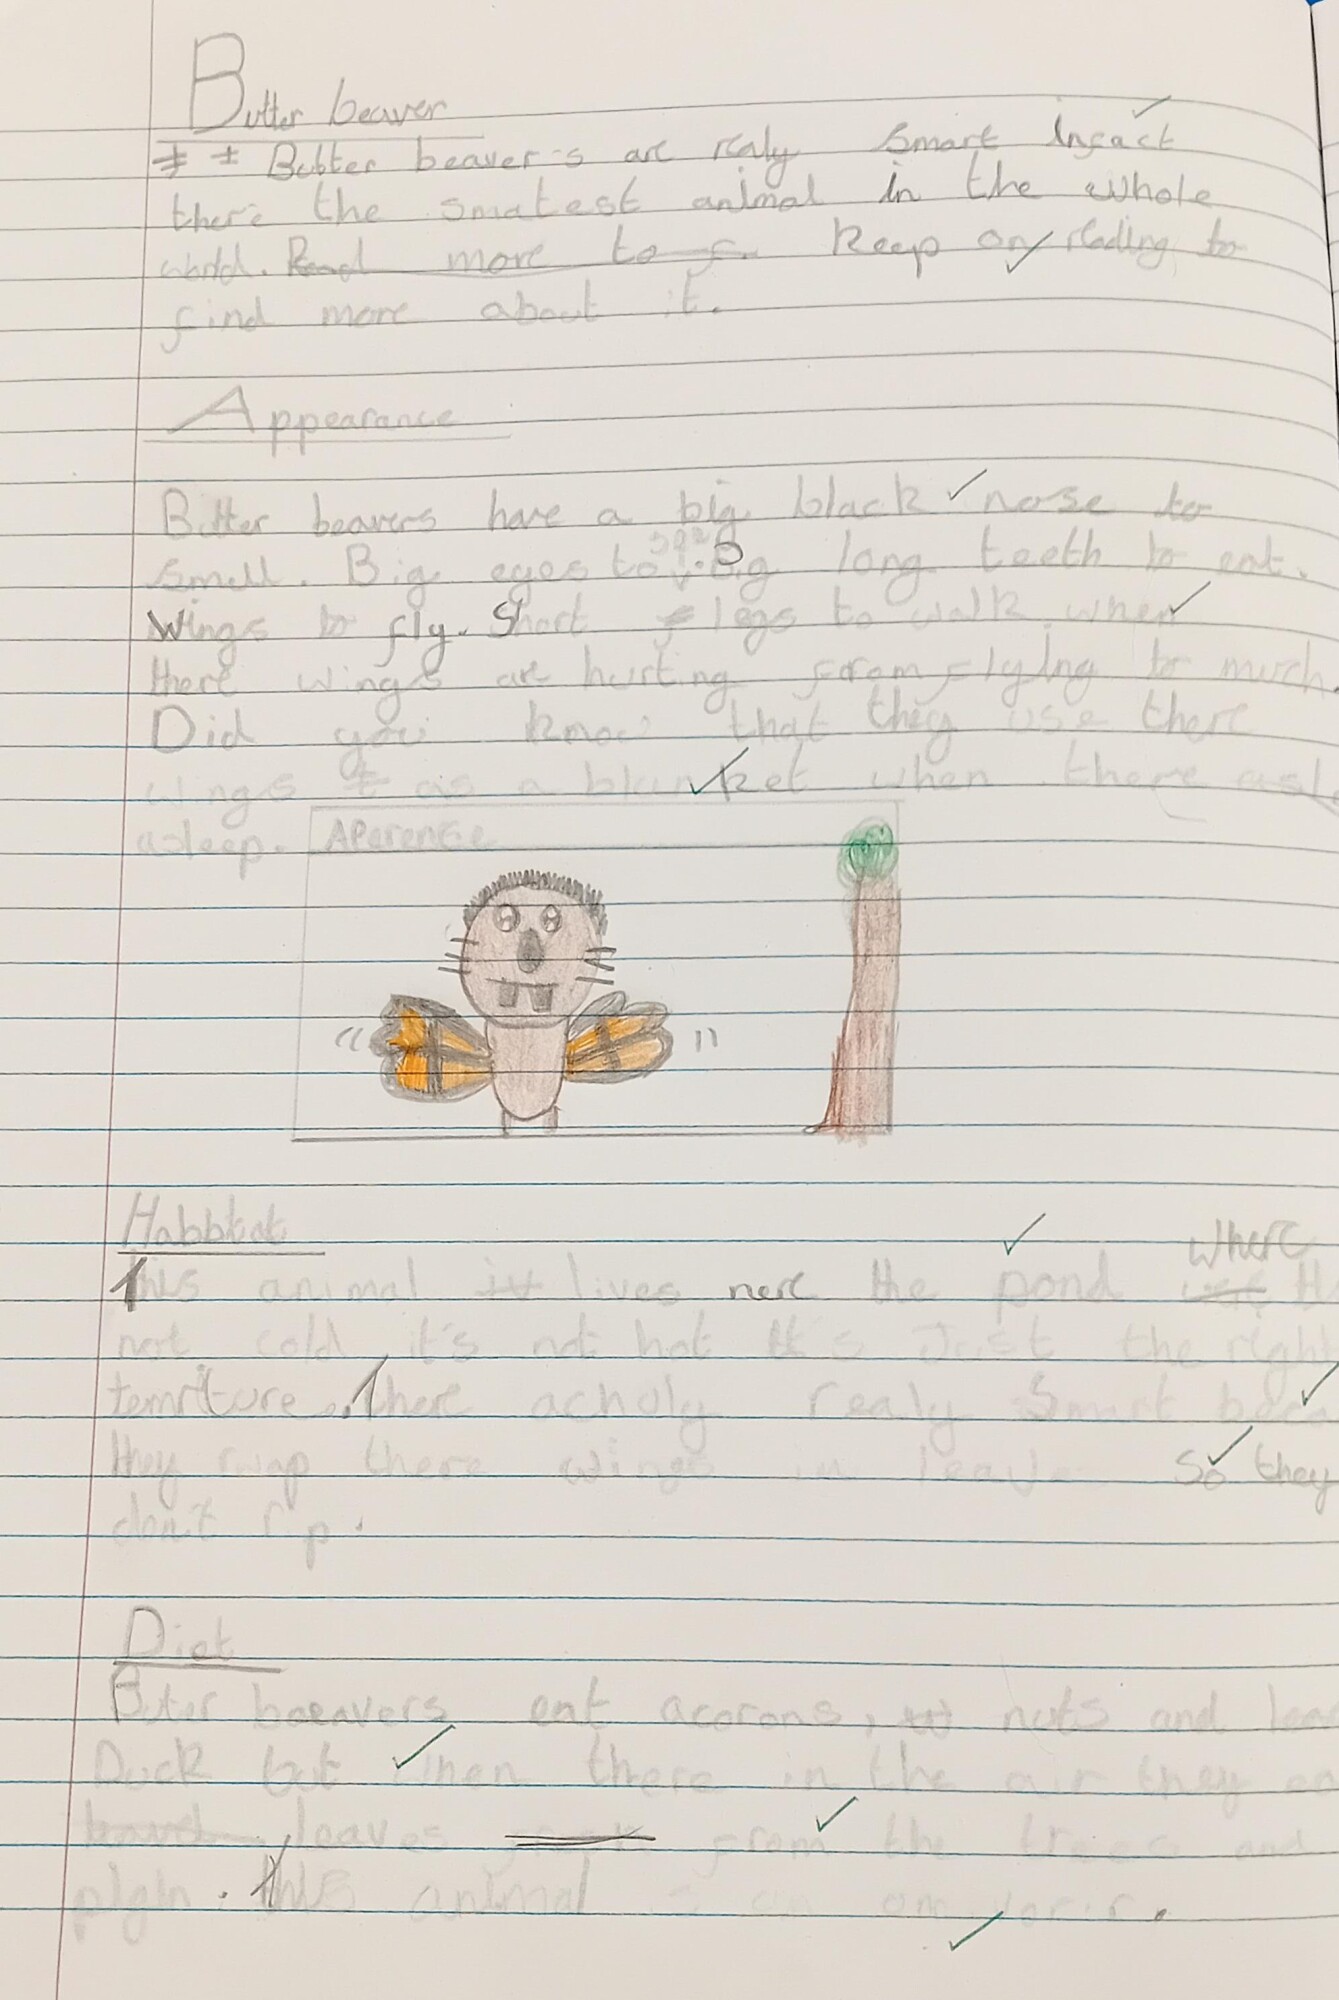 Butter beaver
Butter beaver's are realy smart Infact
there the smatest animal in the whole
world. Read more to f. Keep on reading to
find more about it.
Appearance
Butter beavers have a big black nose to
smell. Big eyes to . Big long teeth to eat.
Wings to fly. Short legs to walk when
there wings are hurting from flying to much.
Did you know that they use there
wings as a blanket when there asle
asleep.
Aparence
Habbtat
This animal it lives nere the pond where
not cold it's not hot it's Just the right
temriture. There acholy realy smart beca
they rwap there wings in leave so they
don't rip.
Diet
Buter baeavers eat acorons, nuts and lea
Duck but when there in the air they ea
leaves from the trees and
pigin. this animal is an